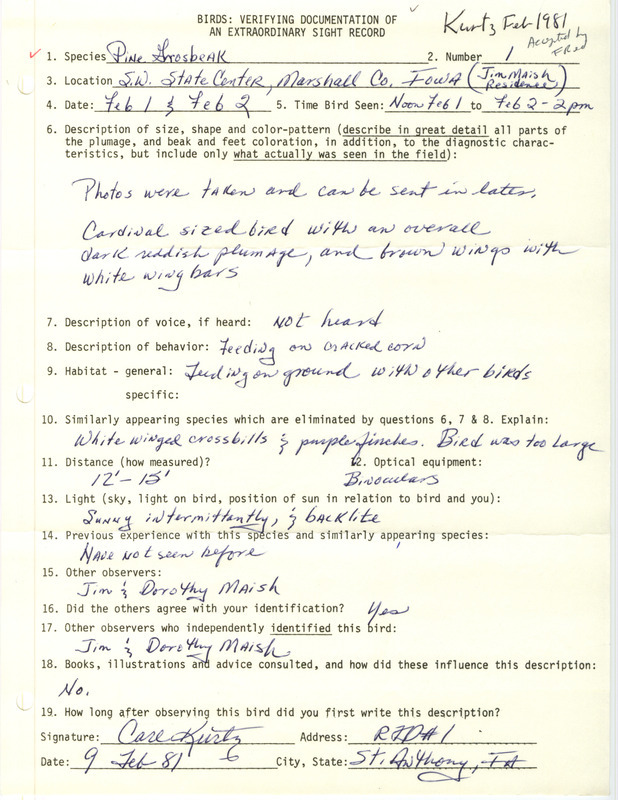 BIRDS: VERIFYING DOCUMENTATION OF
AN EXTRAORDINARY SIGHT RECORD
Kurtz Feb 1981
Accepted by
FRED
1. Species Pine Grosbeak 2. Number 1
3. Location S.W. State Center, Marshall Co. Iowa (Jim Maish Residence)
4. Date: Feb 1 & Feb 2 5. Time Bird Seen: Noon Feb 1 to Feb 2 - 2 pm
6. Description of size, shape and color-pattern (describe in great detail all parts of
the plumage, and beak and feet coloration, in addition, to the diagnostic charac-
teristics, but include only what actually was seen in the field):
Photos were taken and can be sent in later.
Cardinal sized bird with an overall
dark reddish plumage, and brown wings with
white wing bars
7. Description of voice, if heard: Not heard
8. Description of behavior: Feeding on cracked corn
9. Habitat - general: Feeding on ground with other birds
specific:
10. Similarly appearing species which are eliminated by questions 6, 7 & 8. Explain:
White winged crossbills & purple finches. Bird was too large
11. Distance (how measured)? 12. Optical equipment:
12'-15' Binoculars
13. Light (sky, light on bird, position of sun in relation to bird and you):
Sunny intermittently, & backlite
14. Previous experience with this species and similarly appearing species:
Have not seen before
15. Other observers:
Jim & Dorothy Maish
16. Did the others agree with your identification? Yes
17. Other observers who independently identified this bird:
Jim & Dorothy Maish
18. Books, illustrations and advice consulted, and how did these influence this description:
No.
19. How long after observing this bird did you first write this description?
Signature: Carl Kurtz Address: RFD#1
Date: 9 Feb 81 City, State: St. Anthony, IA